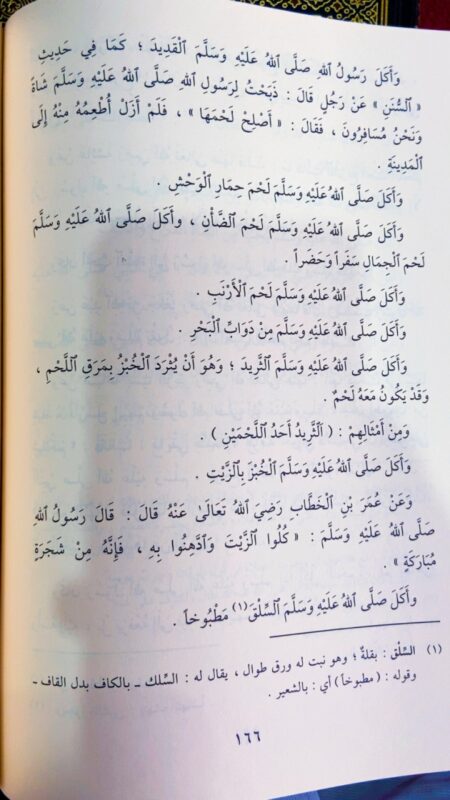 وَأَكَلَ رَسُولُ ٱللهِ صَلَّى ٱللهُ عَلَيْهِ وَسَلَّمَ ٱلْقَدِيدَ ؛ كَمَا فِي حَدِيثِ
« ٱلسُّنَنِ » عَنْ رَجُلٍ قَالَ : ذَبَحْتُ لِرَسُولِ ٱللهِ صَلَّى ٱللهُ عَلَيْهِ وَسَلَّمَ شَاةً
وَنَحْنُ مُسَافِرُونَ ، فَقَالَ : « أَصْلِحْ لَحْمَهَا » ، فَلَمْ أَزَلْ أُطْعِمُهُ مِنْهُ إِلَى
ٱلْمَدِينَةِ .
وَأَكَلَ صَلَّى ٱللهُ عَلَيْهِ وَسَلَّمَ لَحْمَ حِمَارِ ٱلْوَحْشِ .
وَأَكَلَ صَلَّى ٱللهُ عَلَيْهِ وَسَلَّمَ لَحْمَ ٱلضَّأْنِ ، وأَكَلَ صَلَّى ٱللهُ عَلَيْهِ وَسَلَّمَ
لَحْمَ ٱلْجِمَالِ سَفَراً وَحَضَراً .
وَأَكَلَ صَلَّى ٱللهُ عَلَيْهِ وَسَلَّمَ لَحْمَ ٱلْأَرْنَبِ .
وَأَكَلَ صَلَّى ٱللهُ عَلَيْهِ وَسَلَّمَ مِنْ دَوَابِّ ٱلْبَحْرِ .
وَأَكَلَ صَلَّى ٱللهُ عَلَيْهِ وَسَلَّمَ ٱلثَّرِيدَ ؛ وَهُوَ أَنْ يُثْرَدَ ٱلْخُبْزُ بِمَرَقِ ٱللَّحْمِ ،
وَقَدْ يَكُونُ مَعَهُ لَحْمٌ .
وَمِنْ أَمْثَالِهِمْ : ( ٱلثَّرِيدُ أَحَدُ ٱللَّحْمَيْنِ ) .
وَأَكَلَ صَلَّى ٱللهُ عَلَيْهِ وَسَلَّمَ ٱلْخُبْزَ بِٱلزَّيْتِ .
وَعَنْ عُمَرَ بْنِ ٱلْخَطَّابِ رَضِيَ ٱللهُ تَعَالَىٰ عَنْهُ قَالَ : قَالَ رَسُولُ ٱللهِ
صَلَّى ٱللهُ عَلَيْهِ وَسَلَّمَ : « كُلُوا ٱلزَّيْتَ وَٱدَّهِنُوا بِهِ ، فَإِنَّهُ مِنْ شَجَرَةٍ
مُبَارَكَةٍ » .
وَأَكَلَ صَلَّى ٱللهُ عَلَيْهِ وَسَلَّمَ ٱلسِّلْقَ(١) مَطْبُوخاً .
(١) السِّلْق : بقلة ؛ وهو نبت له ورق طوال ، يقال له : السِّلك ـ بالكاف بدل القاف ـ
وقوله : ( مطبوخاً ) أي : بالشعير .
١٦٦